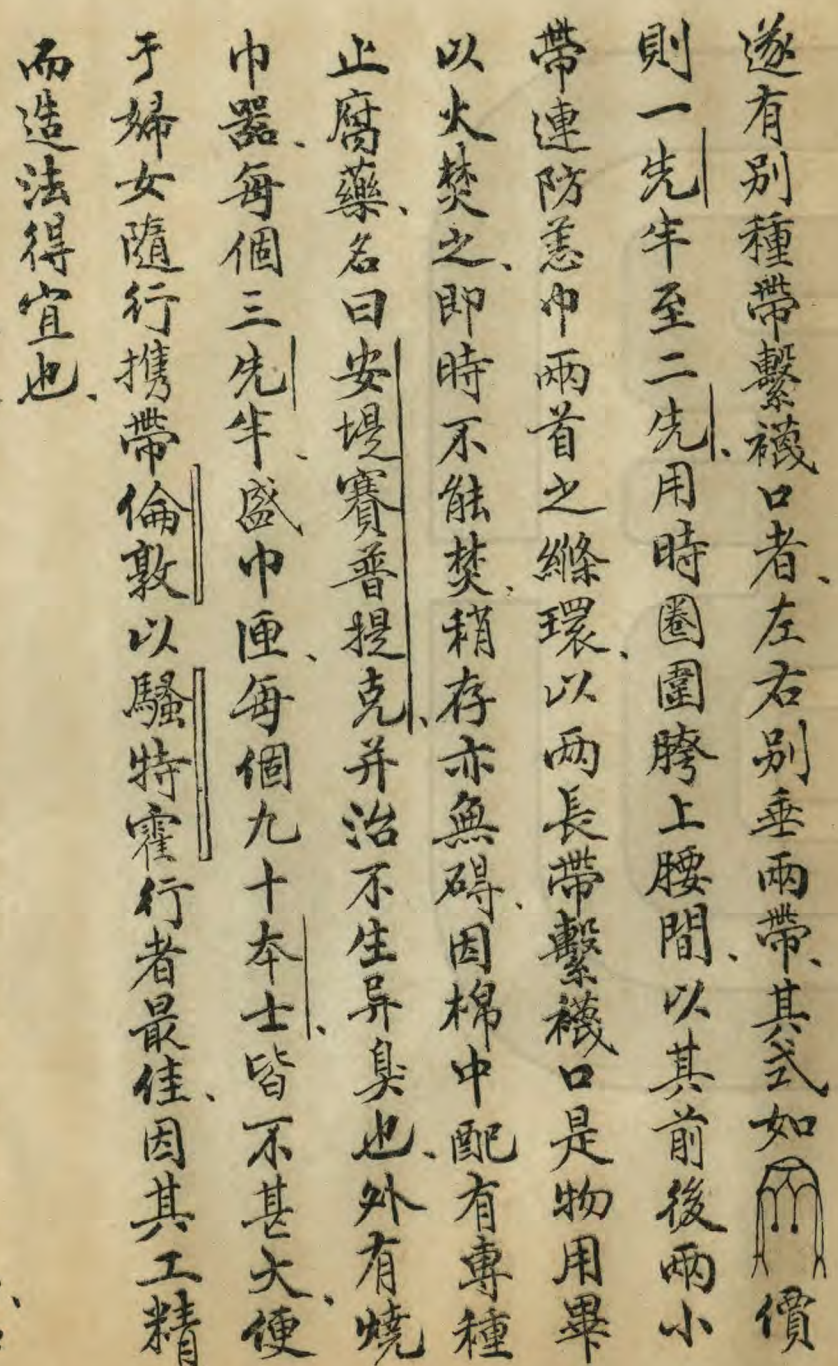 遂有别種帶繫襪口者、左右别垂兩帶、其式如價
則一先半至二先、用時圈圍胯上腰間、以其前後兩小
帶連防恙巾兩首之縧環、以两長帶繫襪口是物用畢
以火焚之、即時不能焚、稍存亦無碍、因棉中配有專種
止腐藥、名曰安堤賽普提克、并治不生异臭也、外有燒
巾器、每個三先半、盛巾匣、每個九十本士、皆不甚大、便
于婦女隨行携帶倫敦以騷特霍行者最佳、因其工精
而造法得宜也、